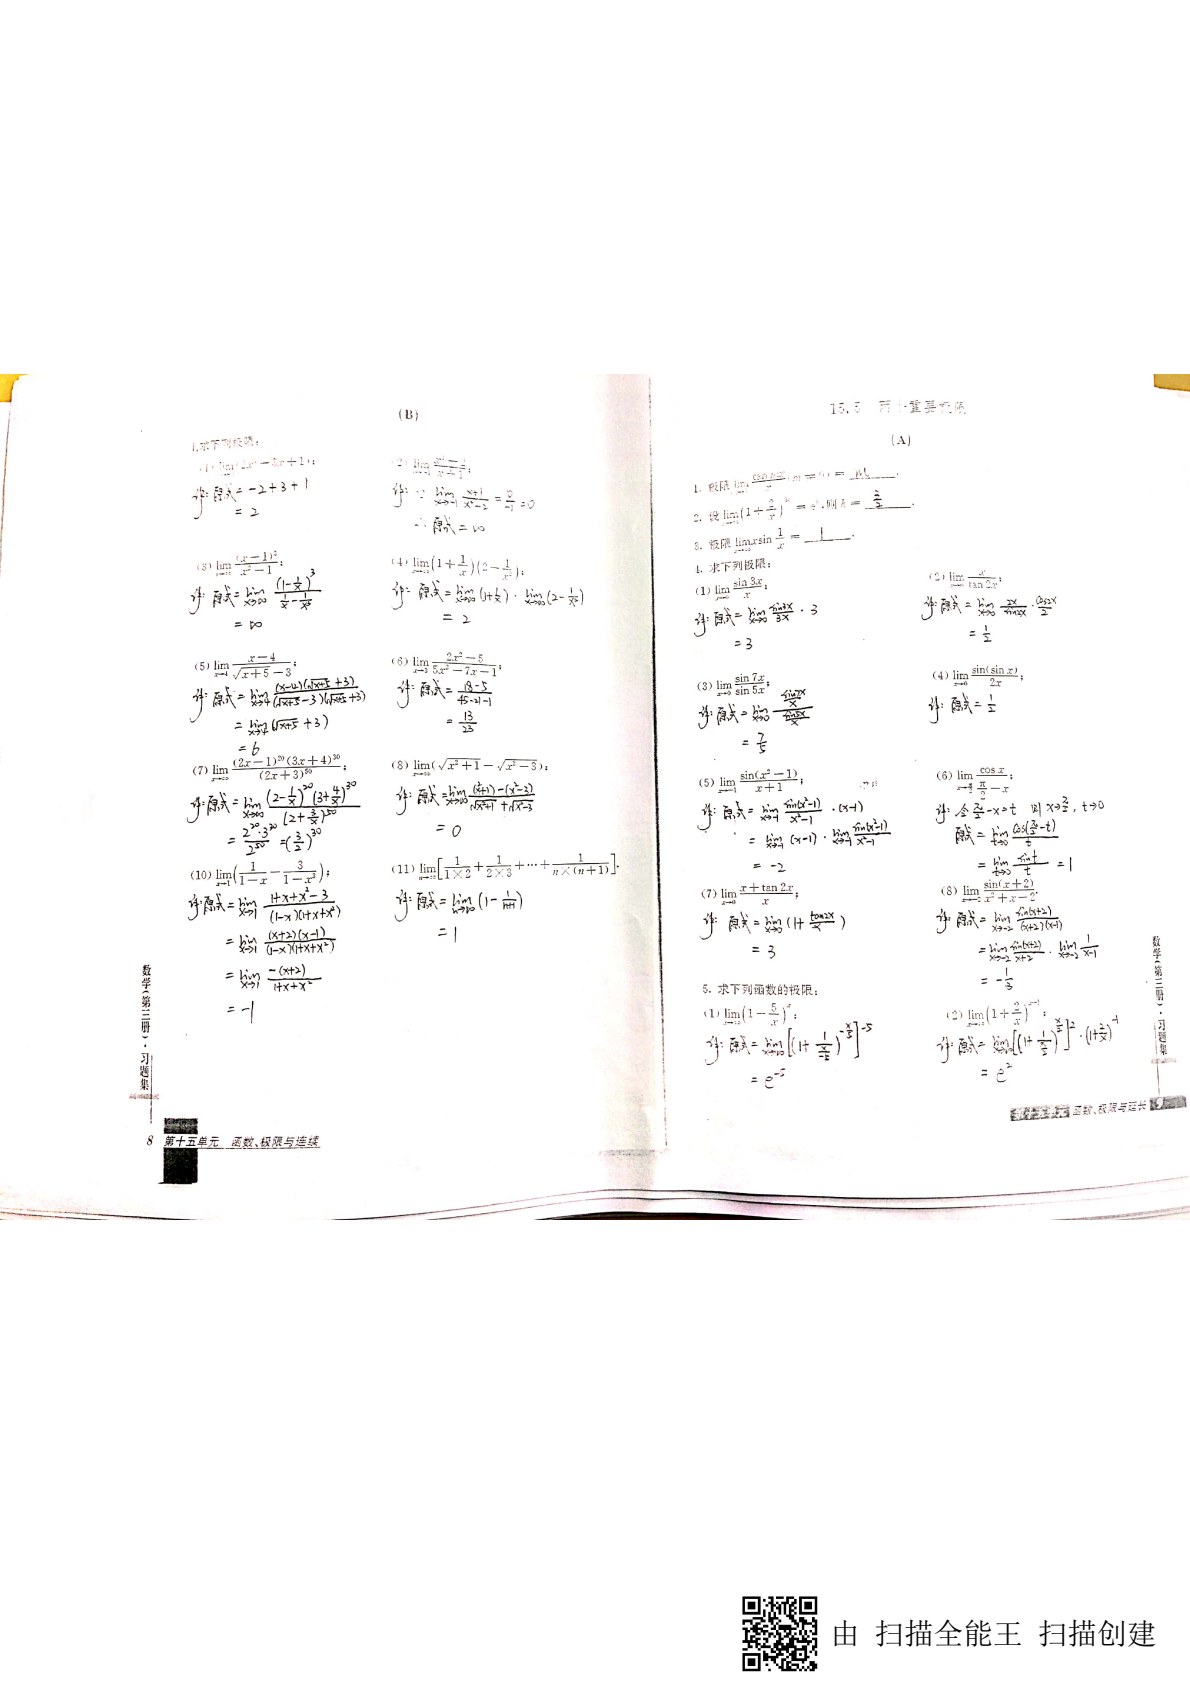 (B)
1.求下列极限:
解:原式=-2+3+1
=2
解:∵ lim x→-1 (x+1)/(x²-2) = 0/-1 = 0
∴ 原式=∞
(3) lim (x-1)³/(x²-1);
解:原式= lim x→∞ (1-1/x)³/(1/x-1/x³)
=∞
(4) lim(1+1/x)(2-1/x²);
解:原式= lim x→∞ (1+1/x)· lim x→∞ (2-1/x²)
=2
(5) lim x→4 (x-4)/(√(x+5)-3);
解:原式= lim x→4 (x-4)(√(x+5)+3)/(√(x+5)-3)(√(x+5)+3)
= lim x→4 (√(x+5)+3)
=6
(6) lim x→3 (2x²-5)/(5x²-7x-1);
解:原式= (18-5)/(45-21-1)
= 13/23
(7) lim x→∞ (2x-1)²⁰(3x+4)³⁰/(2x+3)⁵⁰;
解:原式= lim x→∞ (2-1/x)²⁰(3+4/x)³⁰/(2+3/x)⁵⁰
= 2²⁰·3³⁰/2⁵⁰ =(3/2)³⁰
(8) lim x→∞ (√(x²+1)-√(x²-3));
=0
(10) lim x→1 (1/(1-x)-3/(1-x³));
解:原式= lim x→1 (1+x+x²-3)/(1-x)(1+x+x²)
= lim x→1 (x+2)(x-1)/(1-x)(1+x+x²)
= lim x→1 -(x+2)/(1+x+x²)
=-1
(11) lim n→∞ [1/(1×2)+1/(2×3)+⋯+1/(n×(n+1))].
解:原式= lim n→∞ (1-1/(n+1))
=1
数学(第三册)·习题集
8 第十五单元 函数、极限与连续
15.5 两个重要极限
(A)
3. 极限 lim x sin 1/x = 1 .
4. 求下列极限:
(1) lim x→0 sin 3x/x;
解:原式= lim x→0 sin3x/3x · 3
=3
(2) lim x→0 x/tan 2x;
解:原式= lim x→0 2x/sin2x · cos2x/2
= 1/2
(3) lim x→0 sin 7x/sin 5x;
解:原式= lim x→0 (sin7x/x)/(sin5x/x)
= 7/5
(4) lim x→0 sin(sin x)/2x;
解:原式= 1/2
(5) lim x→-1 sin(x²-1)/(x+1);
解:原式= lim x→-1 sin(x²-1)/(x²-1) ·(x-1)
= lim x→-1 (x-1)· lim x→-1 sin(x²-1)/(x²-1)
=-2
(6) lim x→π/2 cos x/(π/2-x);
解:令π/2-x=t 则 x→π/2, t→0
原式= lim t→0 cos(π/2-t)/t
= lim t→0 sint/t =1
(7) lim x→0 (x+tan 2x)/x;
解:原式= lim x→0 (1+tan2x/x)
=3
(8) lim x→-2 sin(x+2)/(x²+x-2).
解:原式= lim x→-2 sin(x+2)/(x+2)(x-1)
= lim x→-2 sin(x+2)/(x+2) · lim x→-2 1/(x-1)
= -1/3
5. 求下列函数的极限:
(1) lim x→∞ (1-5/x)ˣ;
=e⁻⁵
(2) lim x→∞ (1+2/x)ˣ⁻¹;
=e²
数学(第三册)·习题集
第十五单元 函数、极限与延长 9
由 扫描全能王 扫描创建